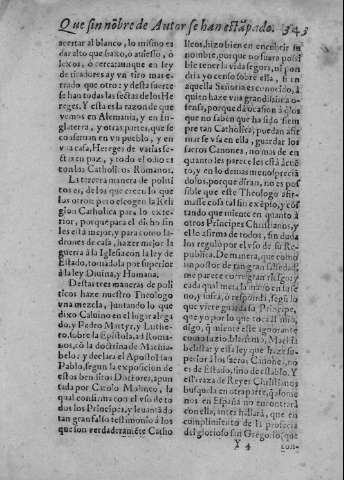 Que sin nõbre de Autor se han estãpado. 343
acertar al blanco, lo mismo es
dar alto que baxo, o atiesso, o
lexos, ò cerca: aunque en ley
de tiradores ay vn tiro mas er-
rado que otro: y desta suerte
se han todas las sectas de los He
reges. Y esta es la razon de que
vemos en Alemania, y en In-
glaterra, y otras partes, que se
conseruan en vn pueblo, y en
vna casa, Hereges de varias sec-
tas en paz, y todo el odio es
con los Catholicos Romanos.
La tercera manera de politi-
cos es, de los que creen lo que
las otros: pero escogen la Reli
gion Catholica para lo exte-
rior, porque para el dicho fin
les està mejor, y para como la-
drones de casa, hazer mejor la
guerra à la Iglesia con la ley de
Estado, tomãdola por superior
à la ley Diuina, y Humana.
Destas tres maneras de poli-
ticos haze nuestro Theologo
vna mezcla, juntando lo que
dixo Caluino en el lugar alega
do, y Pedro Martyr, y Luthe-
ro, sobre la Epistola, ad Roma-
nos, cò la doctrina de Machia-
belo: y declara el Apostol san
Pablo, segun la exposicion de
estos benditos Doctores, apun
tada por Carolo Molineo, la
qual confirma con el vso de to
dos los Principes, y leuantãdo
tan gran falso testimonio à los
que son verdaderamēte Catho
licos, hizo bien en encubrir su
nombre, porque no fuera possi
ble tener la vida segura, ni
dria yo censo sobre ella, si en
aquella Señoria es conocido, à
quien haze vna grandissima o-
fensa, porque dà ocasion à q̃ los
que no saben que ha sido siem
pre tan Catholica, puedan afir
mar se vía en ella, guardar los
sacros Canones, no mas de en
quanto les parece les està acuē
to, y en lo demas menosprecia
dolos, porque diran, no es pos
sible que este Theologo afir-
masse cosa tal sin exẽplo, y cõs
tando que miente en quanto à
otros Principes Christianos, y
el lo afirma de todos, sin duda
los reguló por el vso de su Re-
publica. De manera, que como
impostor de tan gran falsedad,
me parece corre gran riesgo, y à
cada qual
no, y assi, respondi, segũ lo
que viere guarda su Principe,
que yo por lo que toca al mio,
digo, q̃ miente este ignorante
como Luzio, blasfemo, Machia
belista: y esta ley que haze su-
perior à los sacros Canones, no
es de Estado, sino de establo. Y
essa raza de Reyes Christianos
busquela en otra parte, q̃ à lome
nos en España no encontrarà
con ella, antes hallarà, que en
cumplimiento de la profecia
del glorioso san Gregorio, (que
Y 4 con-